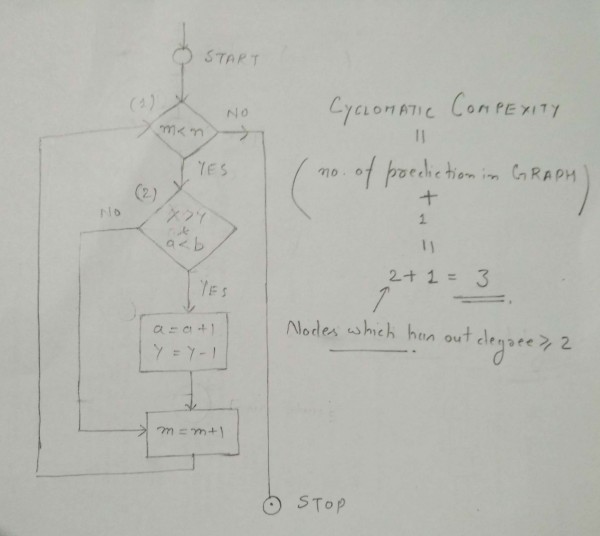 START
(1)
m<n
NO
YES
(2)
X>Y
&
a<b
NO
YES
a=a+1
Y=Y-1
m=m+1
STOP
CYCLOMATIC COMPEXITY
=
(no. of prediction in GRAPH)
+
1
=
2+1=3.
Nodes which has out degree ≥ 2